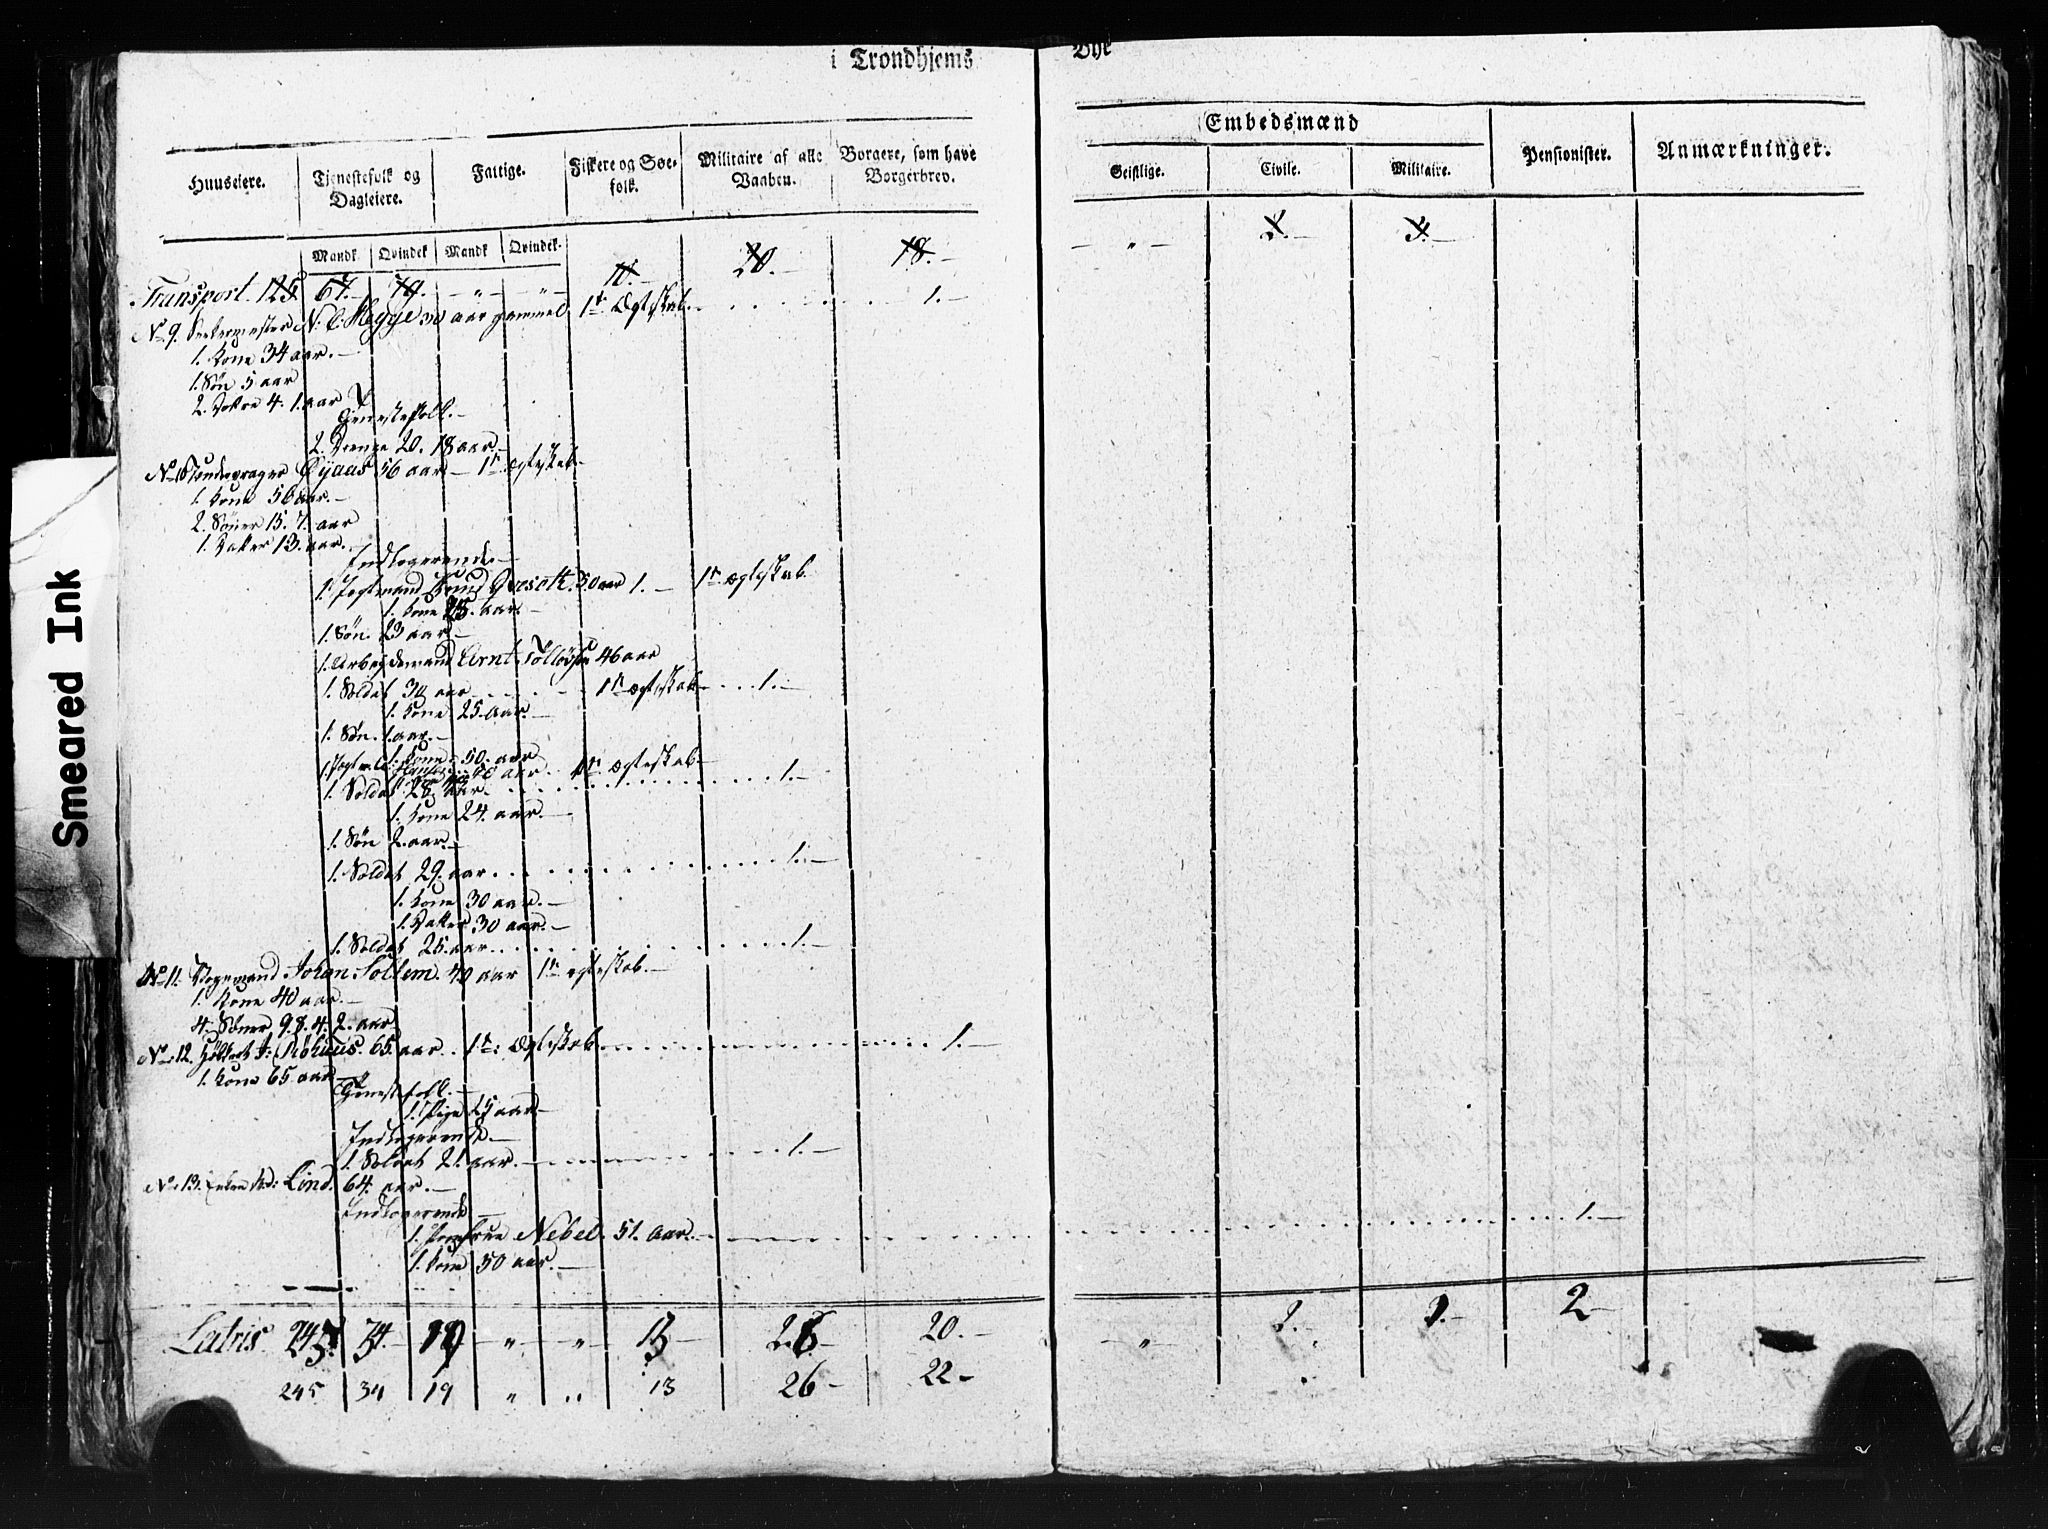 i Trondhjems Bye
Huuseiere.
Tjenestefolk og Dagleiere.
Fattige.
Fiskere og Søe-folk.
Militaire af alle Vaaben.
Borgere, som have Borgerbrev.
Embedsmænd
Geistlige.
Civile.
Militaire.
Pensionister.
Anmærkninger.
Mandk Qvindek Mandk Qvindek.
Transport. 125. 67. 79. — " — — " — 10. — 20. — 18. — — " — 2. — 3. —
No 9. N: C: Megge 30 aar gammel 1te Ægteskab. 1. —
1. Kone 34 aar. —
1. Søn 5 aar
2. Døttre 4. 1. aar
Tjenestefolk. —
2. Drenge 20. 18 aar. —
No 10 Øyaas 56 aar — 1te Ægteskab —
1. Kone 56 aar. —
2. Sønner 15. 7. aar
1. Datter 13. aar. —
Indlogerende —
1. Jegtmand Knud 50 aar 1. — 1te Ægteskab
1. Kone 25. aar. —
1. Søn. 23 aar —
1. Arbeydsmand Arnt 46 aar
1. Soldat 30 aar 1te Ægteskab — 1. —
1. Kone 25. aar. —
1. Søn. 1. aar. —
1. Kone 50. aar
aar. 1te Ægteskab. —
1. Soldat 28 aar. 1. —
1. Kone 24. aar. —
1. Søn 2. aar. —
1. Soldat 29. aar 1. —
1. Kone 30 aar. —
1. Datter 30 aar. —
1. Soldat 25. aar 1. —
No 11. Johan Sollem. 40 aar 1te Ægteskab. —
1. Kone 40 aar. —
4. Sønner 9. 8. 4. 2. aar
No 12. J: Røhuus. 65. aar 1te: Ægteskab 1. —
1. Kone 65 aar —
Tjenestfolk. —
1. Pige 25 aar —
Indlogerende. —
1. Soldat 21. aar. — 1. —
No: 13. Enken Lind. 64. aar. —
Indlogerende —
1. Nebel. 51. aar. — 1. —
1. Kone 50 aar. —
Latris 245. 34. 19 — " — " — 13 — 26 — 20. — — " — 2. — 3. — 2 —
245 34 19 " " 13 26 — 22 —
Smeared Ink